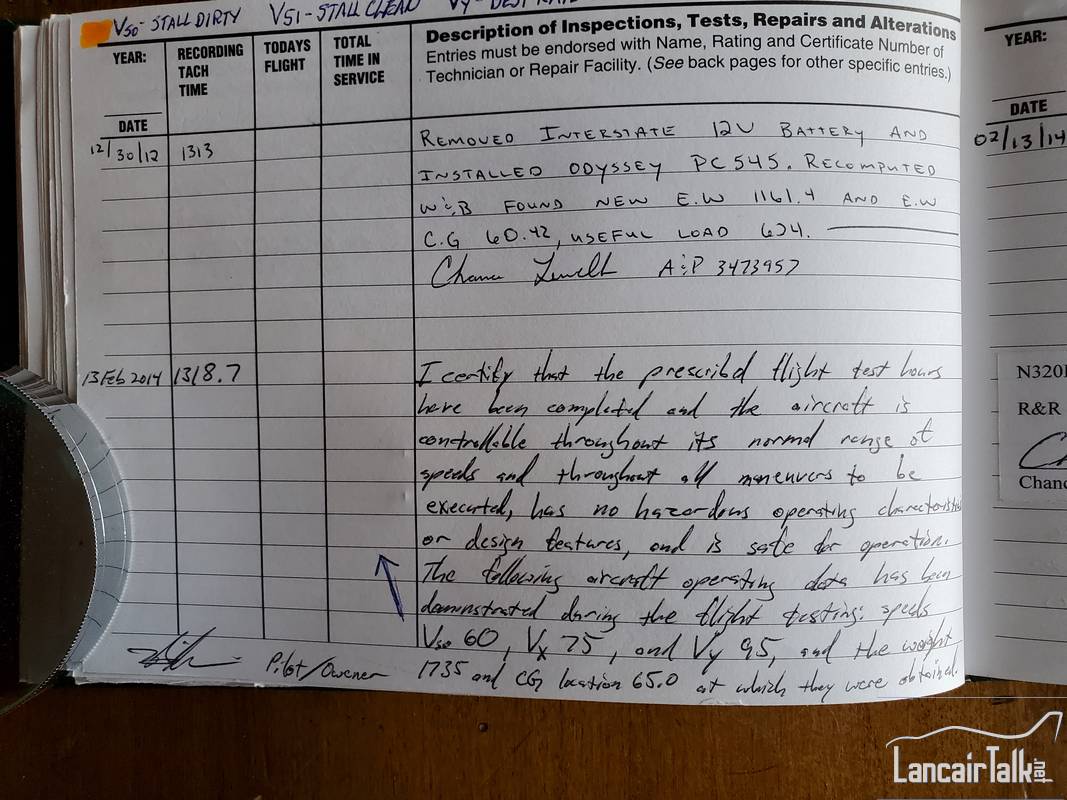 Vso - STALL DIRTY VS1 - STALL CLEAN Vy - BEST RATE
YEAR:
RECORDING TACH TIME
TODAYS FLIGHT
TOTAL TIME IN SERVICE
DATE
Description of Inspections, Tests, Repairs and Alterations
Entries must be endorsed with Name, Rating and Certificate Number of
Technician or Repair Facility. (See back pages for other specific entries.)
12/30/12 1313 REMOVED INTERSTATE 12V BATTERY AND
INSTALLED ODYSSEY PC545. RECOMPUTED
W&B FOUND NEW E.W 1161.4 AND E.W
C.G 60.42, USEFUL LOAD 624.
A&P 3473957
13 Feb 2014 1318.7 I certify that the prescribd flight test hours
have been completed and the aircraft is
controllable throughout its normal range of
speeds and throughout all maneuvers to be
executed, has no hazardous operating characteristics
or design features, and is safe for operation.
The following aircraft operating data has been
demonstrated during the flight testing: speeds
Vso 60, Vx 75, and Vy 95, and the weight
Pilot/Owener 1735 and CG location 65.0 at which they were obtained.
YEAR:
DATE
02/13/14
N320
R&R
Chanc
LancairTalk.net